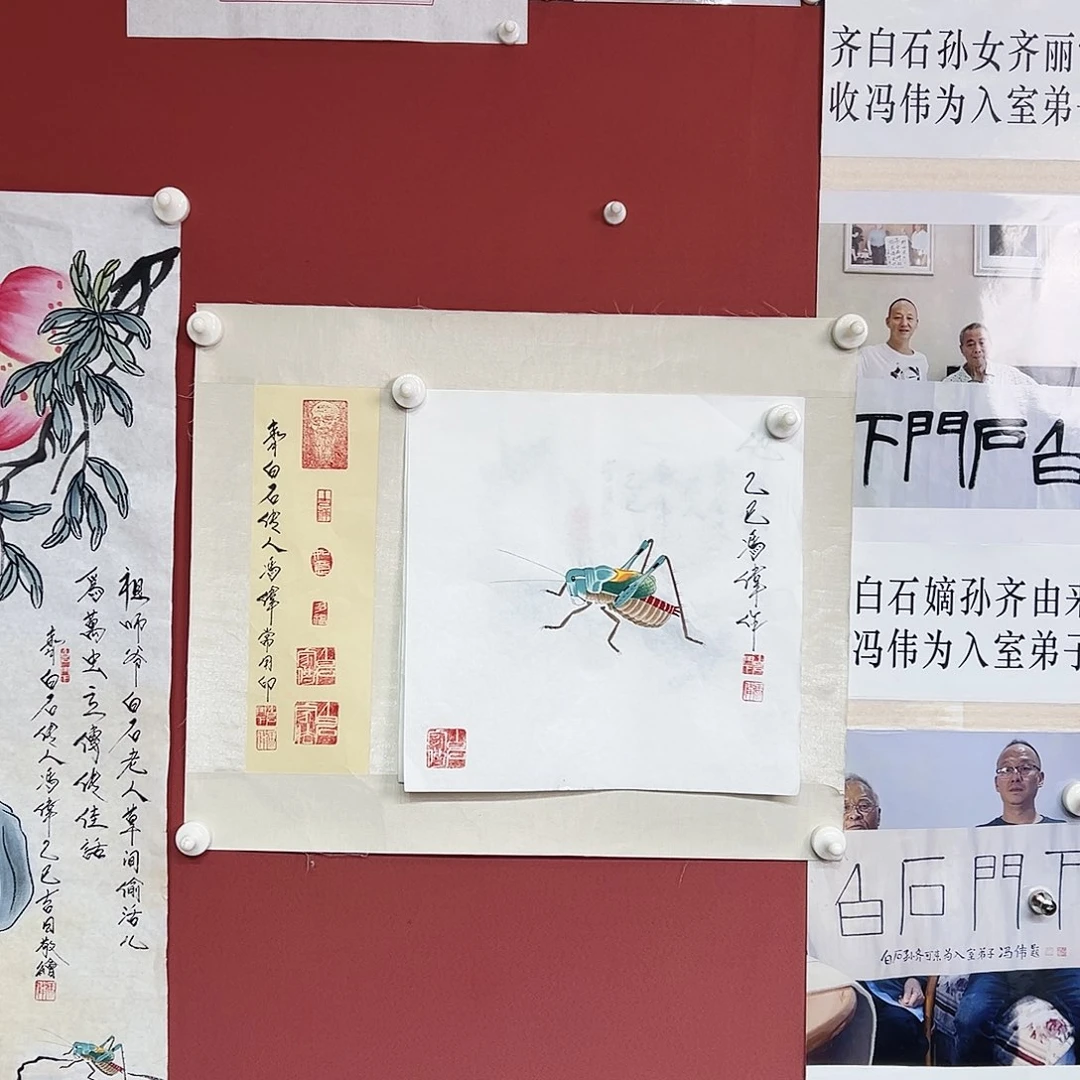 祖师爷白石老人草间偷活儿
为万虫立传传佳话
齐白石传人冯伟乙巳吉日敬绘
齊白石傳人馮偉常用印
乙巳馮偉作
齐白石孙女齐丽
收冯伟为入室弟子
下門石白
白石嫡孙齐由来
冯伟为入室弟子
白石門下
白石孙齐可来为入室弟子冯伟题